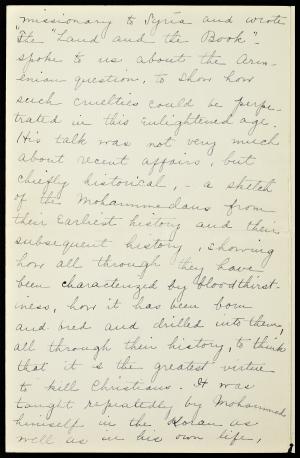 missionary to Syria and wrote
"The "Land and the Book" -
spoke to us about the Arm-
enian question, to show how
such cruelties could be perpe-
trated in this enlightened age.
His talk was not very much
about recent affairs, but
chiefly historical, - a sketch
of the Mohammedans from
their earliest history and their
subsequent history, showing
how all through they have
been characterized by bloodthirst-
iness, how it has been born
and bred and drilled into them,
all through their history, to think
that it is the greatest virtue
to kill Christians. It was
taught repeatedly by Mohammed
himself in the Koran as
well as in his own life,